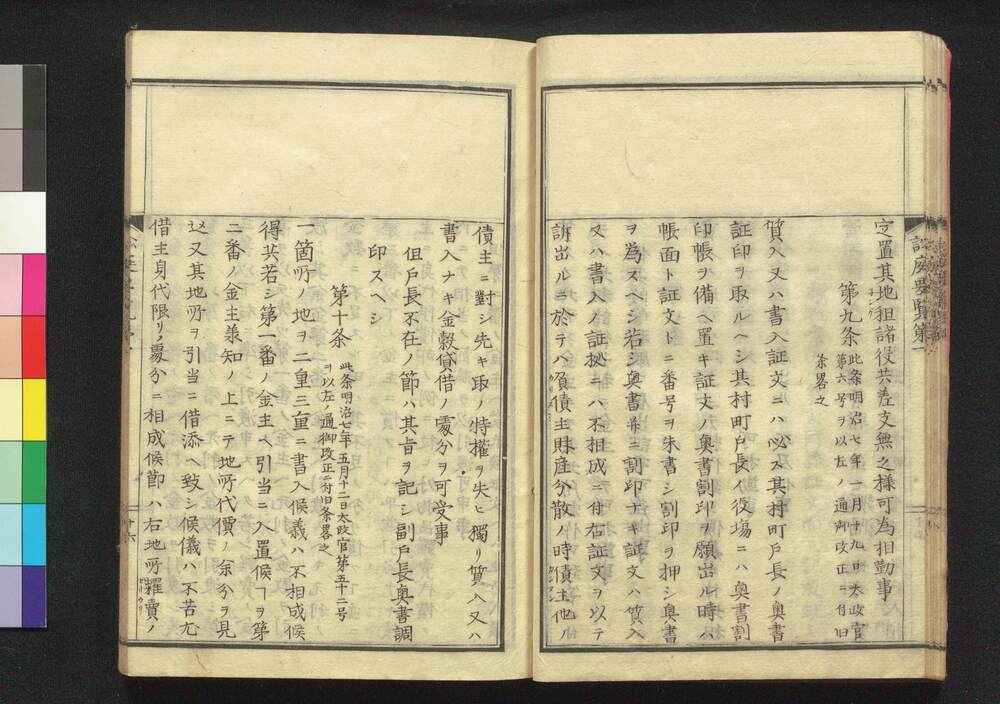 定置其地担諸役共差支無之様可為相勤事
第九条
此条明治七年一月十九日太政官
第六号ヲ以左ノ通御改正ニ付旧
条畧之
質入又ハ書入証文ニハ必ス其村町戸長ノ奥書
証印ヲ取ルヘシ其村町戸長ノ役場ニハ奥書割
印帳ヲ備ヘ置キ証文ノ奥書割印ヲ願出ル時ハ
帳面ト証文トニ番号ヲ朱書シ割印ヲ押シ奥書
ヲ為スヘシ若シ奥書并ニ割印ナキ証文ハ質入
又ハ書入ノ証拠ニハ不相成ニ付右証文ヲ以テ
訴出ルニ於テハ負債主財産分散ノ時債主他ノ
訟庭要覧第一
債主ニ對シ先キ取ノ特權ヲ失ヒ獨リ質入又ハ
書入ナキ金穀貸借ノ處分ヲ可受事
但戸長不在ノ節ハ其旨ヲ記シ副戸長奥書調
印スヘシ
第十条
此条明治七年五月十二日太政官第五十二号
ヲ以左ノ通御改正ニ付旧条畧之
一箇所ノ地ヲ二重三重ニ書入候義ハ不相成候
得共若シ第一番ノ金主ヘ引当ニ入置候ヿヲ第
二番ノ金主兼知ノ上ニテ地所代價ノ余分ヲ見
込又其地所ヲ引当ニ借添ヘ致シ候儀ハ不苦尤
借主身代限リノ處分ニ相成候節ハ右地所糶賣ノ
十六